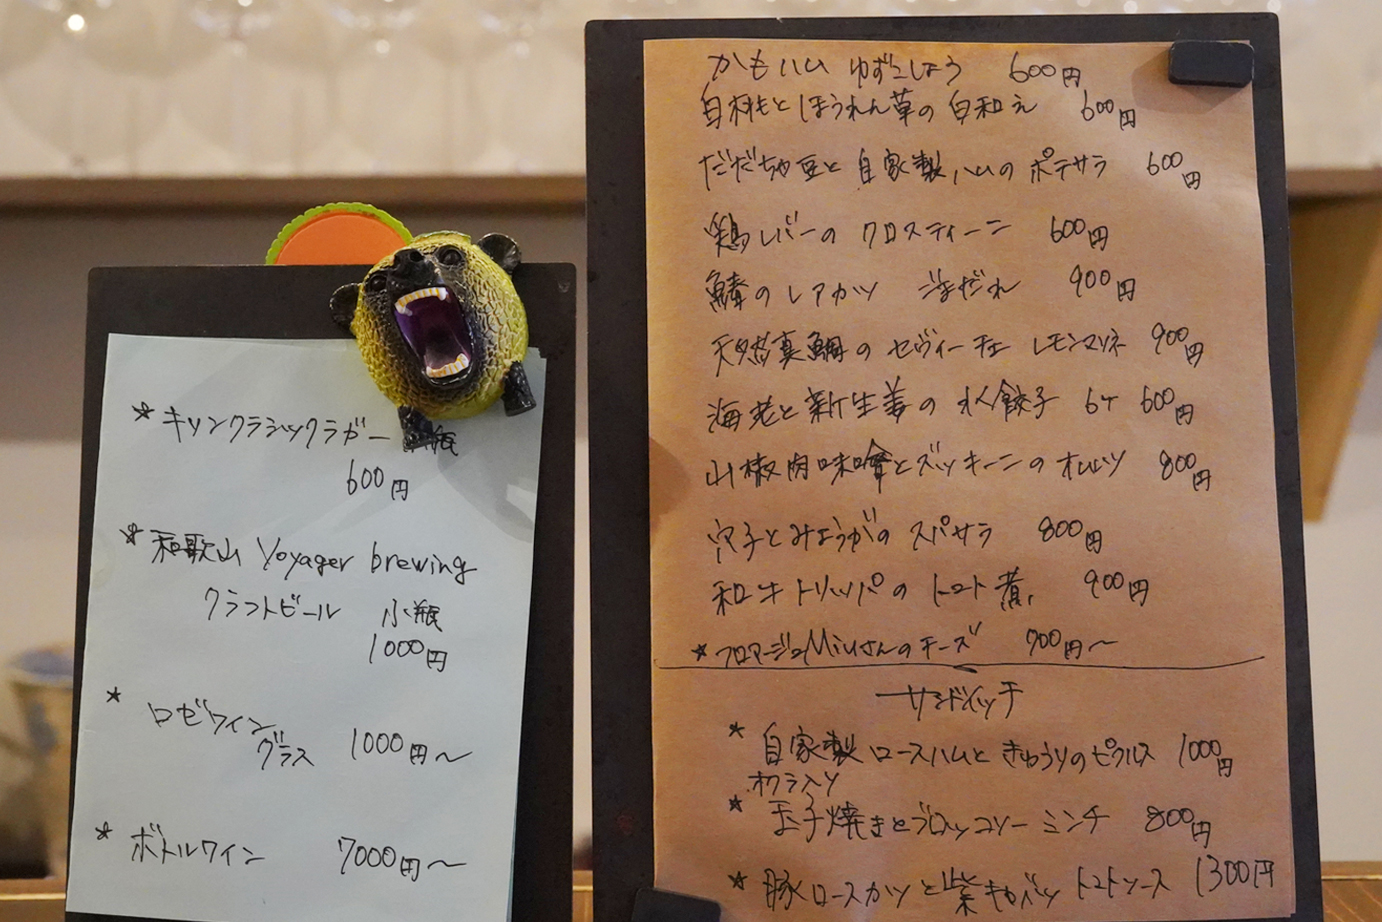 ＊キリンクラシックラガー 瓶
600円
＊和歌山 Voyager brewing
クラフトビール 小瓶
1000円
＊ロゼワイン
グラス 1000円〜
＊ボトルワイン 7000円〜
かもハム ゆずこしょう 600円
白桃とほうれん草の白和え 600円
だだちゃ豆と自家製ハムのポテサラ 600円
鶏レバーのクロスティーニ 600円
鰆のレアカツ ごまだれ 900円
天然真鯛のセヴィーチェ レモンマリネ 900円
海老と新生姜の水餃子 6ヶ 600円
山椒肉味噌とズッキーニのオムレツ 800円
穴子とみょうがのスパサラ 800円
和牛トリッパのトマト煮 900円
＊フロマージュMiuさんのチーズ 700円〜
サンドイッチ
＊自家製ロースハムときゅうりのピクルス 1000円
オクラ入り
＊玉子焼きとブロッコリーミンチ 800円
＊豚ロースカツと紫キャベツ トマトソース 1300円